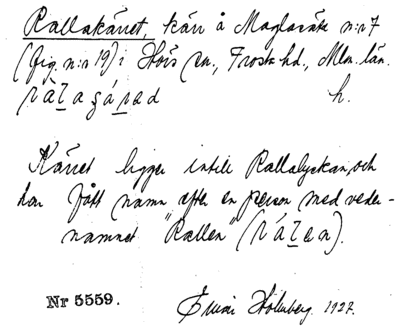 Rallakäret, kär å Maglasäte n:r 7
(fig n:r 19) i Hörs sn., Frosta hd., Mlm. län.
h.
Käret ligger intill Rallalyckan, och
har fått namn efter en person med veder-
namnet "Rallen"
Nr 5559.
Einar Holmberg. 1927.